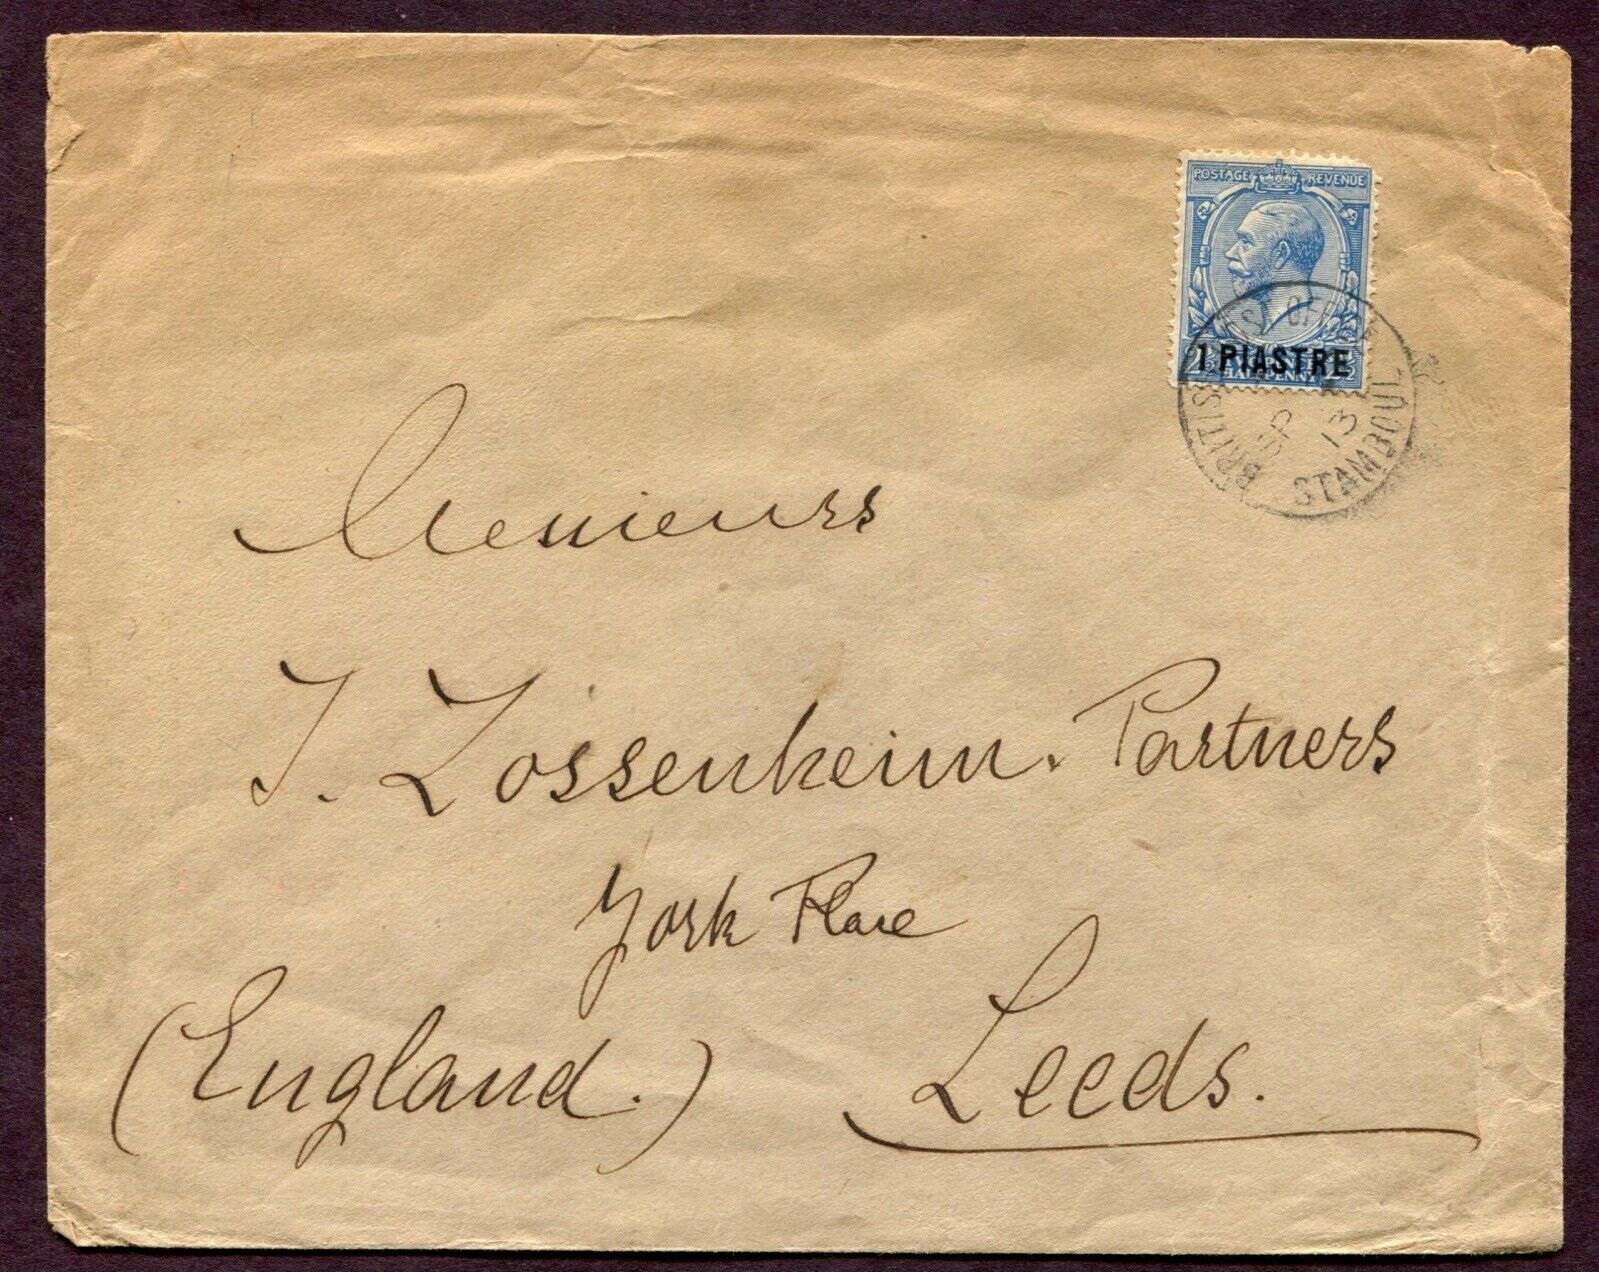 POSTAGE REVENUE
1 PIASTRE
BRITISH POST OFFICE
SP 13
STAMBOUL
Messieurs
J. Lossenheim. Partners
York Place
(England.) Leeds.